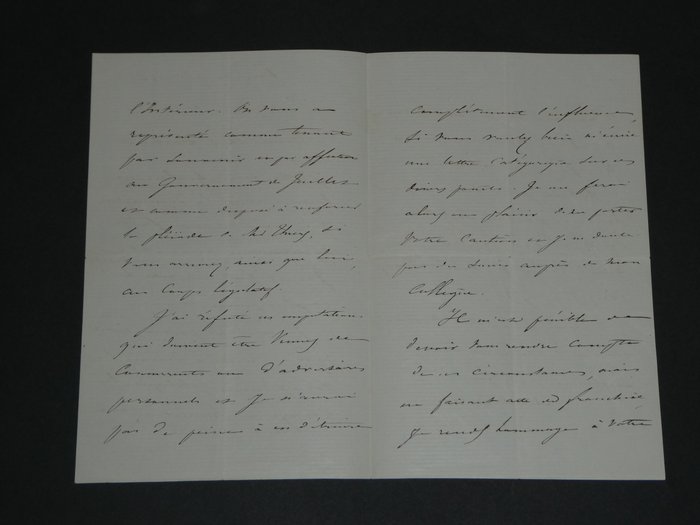 l'Intérieur. On vous a
représenté comme tenant
par souvenir ou par affection
au Gouvernement de Juillet
et comme disposé à renforcer
la pléiade de Mr Thiers, si
vous arriviez, ainsi que lui,
au Corps législatif.
J'ai réfuté ces imputations
qui doivent être venues de
concurrents ou d'adversaires
personnels et je n'aurai
pas de peine à en détruire
complètement l'influence,
si vous voulez bien m'écrire
une lettre catégorique sur ces
divers points. Je me ferai
alors un plaisir de me porter
votre caution et je ne doute
pas du succès auprès de mon
collègue.
Il m'est pénible de
devoir vous rendre compte
de ces circonstances, mais
en faisant acte de franchise,
je rends hommage à votre